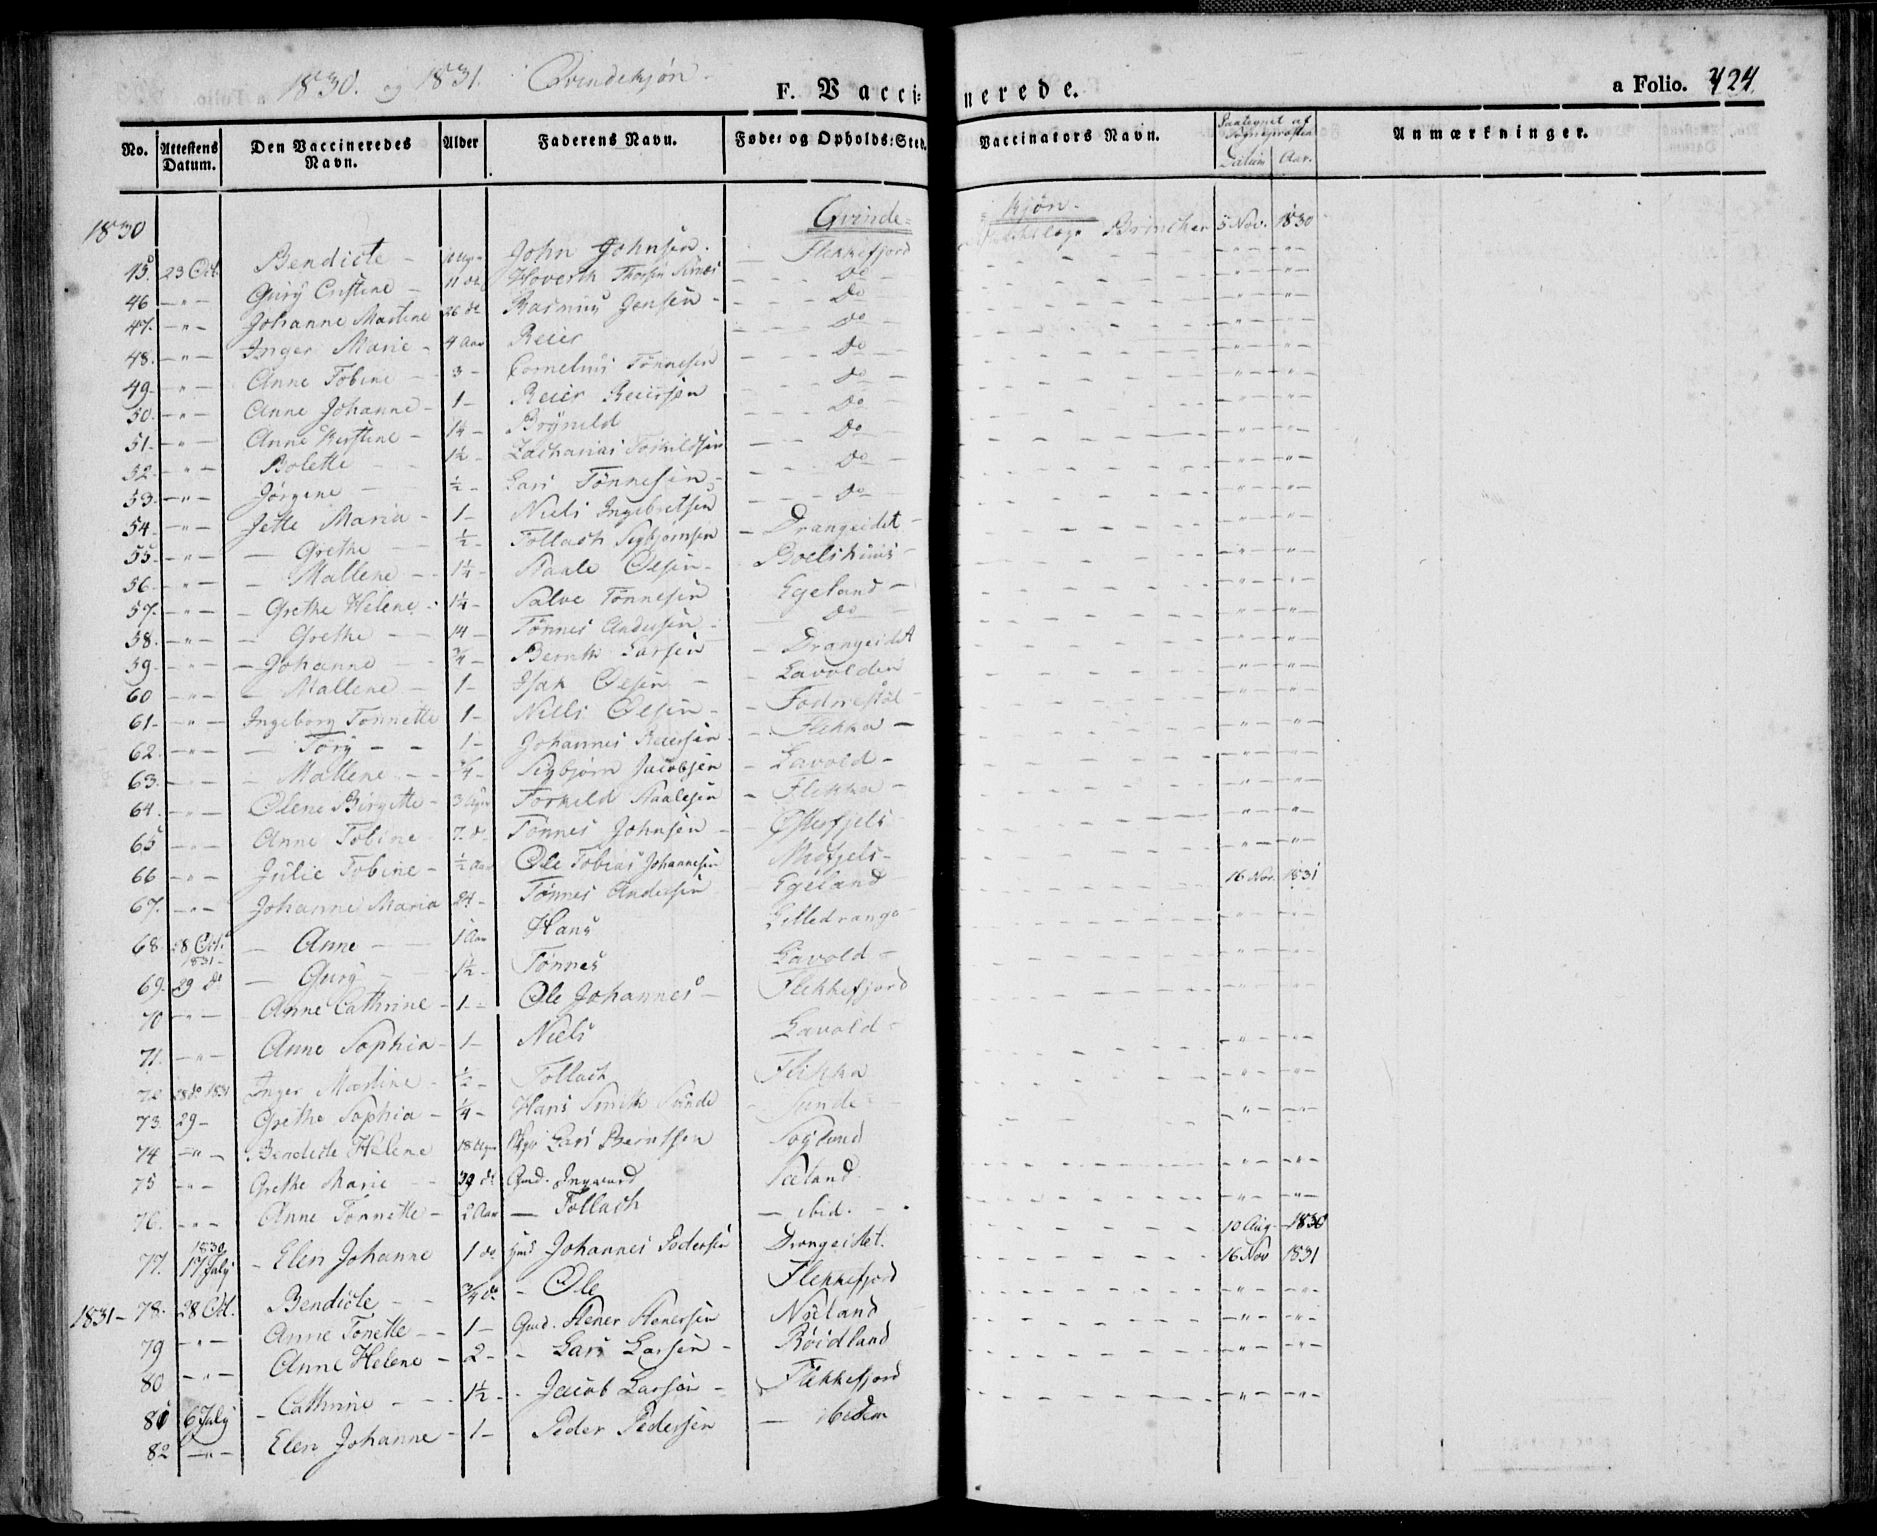 1830. og 1831. Qvindekjøn.
F. Vaccinerede. a Folio. 424.
No. Attestens Datum. Den Vaccineredes Navn. Alder Faderens Navn. Føde- og Opholds-Sted. Vaccinators Navn. Datum Aar. Anmærkninger.
1830 Qvinde- kjøn-
45. 23 Oct. Bendicte - John Johnsen. Flekkefjord Brincker 5 Nov. 1830
46 - " - Gury Cristine - 11 do Hoverth Do - " - - " -
47. - " - Johanne Martine 26 do Rasmus Jensen - Do - " - - " -
48. - " - Inger Marie - 4 Aar Reier Do - " - - " -
49. - " - Anne Tobine 3 - Cornelius Tønnesen Do - " - - " -
50. - " - Anne Johanne - 1 - Reier Reiersen Do - " - - " -
51. - " - Anne Kirstine - 1¼ - Brynild Do - " - - " -
52. - " - Bolette - 1½ - Zacharias Torkildsen Do - " - - " -
53. - " - Jørgine ½ - Lars Tønnesen Do - " - - " -
54. - " - Jette Maria - 1 - Niels Ingebretsen Do - " - - " -
55. - " - Grethe ½ - Tollach Sigbjørnsen - Drangeidet - " - - " -
56. - " - Mallene - 1¼ - Staale Olsen - Boelskuus - " - - " -
57. - " - Grethe Helene 1¼ - Salve Tønnesen Egeland - - " - - " -
58. - " - Grethe 14 - Tønnes Andersen Do - " - - " -
59. - " - Johanne ¾ - Bernth Larsen - Drangeidet - " - - " -
60 - " - Mallene 1 - Isak Olsen - Lavolden - " - - " -
61. - " - Ingeborg Tonnette 1 - Niels Olsen - - " - - " -
62. - " - Tory - - 1 - Johannes Reiersen - Flikka - - " - - " -
63. - " - Mallene - ¾ - Sigbjørn Jacobsen - Lavold - - " - - " -
64. - " - Olene Birgitte - 3 Uger Torkild Staalesen - Flikka - - " - - " -
65 - " - Anne Tobine 7. do Tønnes Johnsen Østerfjels - " - - " -
66 - " - Julie Tobine - ½ Aar Ole Tobias Johannesen - " - - " -
67. - " - Johanne Maria 24 - Tønnes Andersen Egeland 16 Nov. 1831
68. 28 Oct. 1831 - Anne - 1 Aar Hans Lilledrange - " - - " -
69. 29 do - Gury 1½ - Tønnes Lavold - - " - - " -
70 - " - Anne Cathrine - 1 - Ole Johannes - Flekkefjord - " - - " -
71. - " - Anne Sophia - 1 - Niels Lavold - - " - - " -
72 28 do 1831 Inger Martine - ½ - Tollach Flikka - " - - " -
73. 29 - Grethe Sophia - ¼ - Hans Smith Sunde - Sunde - - " - - " -
74 - " - Bendicte Helene 18 Uger Lars Berntsen - " - - " -
75 - " - Grethe Marie 39 do Gmd. Ingward - " - - " -
76. - " - Anne Tonnette - 2 Aar - Tollach - ibid. - - " - - " -
77. 1830 17 July - Elen Johanne 1 do Johannes Pedersen Drangeidet. 10 Aug 1830
1831 - 78. 28 Oct. Bendicte - ¾ do - Ole Flekkefjord 16 Nov 1831
79 - " - Anne Tonette - 1 - Gmd. Stener Stenersen - " - - " -
80 - " - Anne Helene - 2 - - Lars Larsen - Røidland - " - - " -
81 6 July - Cathrine - 1½ - - Jacob Larsen - Flekkefjord - " - - " -
82 - " - Elen Johanne - 1 - Peder Pedersen - ibidem - " - - " -